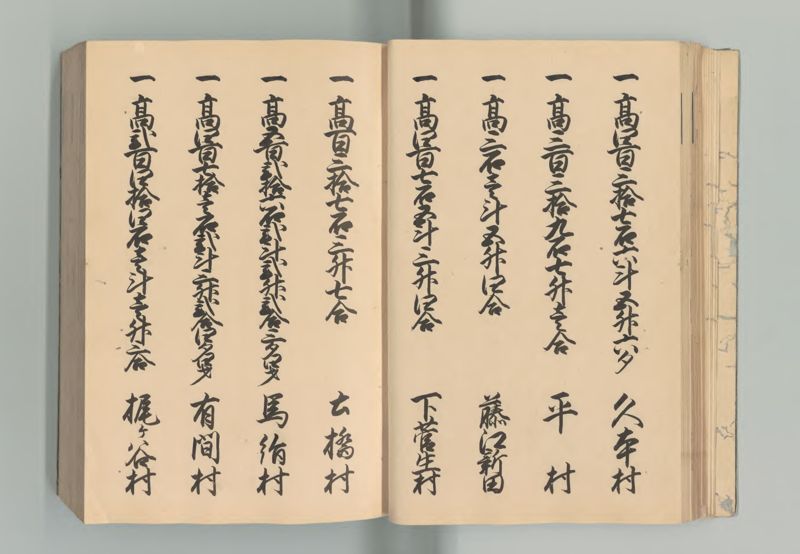 一高四百三拾七石六斗五升六夕 久本村
一高三百三拾九石七升壱合 平村
一高三石壱斗五升四合 藤江新田
一高四百七石五斗三升四合 下菅生村
一高百三拾七石三升七合 土橋村
一高五百弐拾一石弐斗弐升弐合 馬絹村
一高四百七拾壱石弐斗三升弐合四夕 有間村
一高弐百四拾四石壱斗壱升六合 梶ヶ谷村